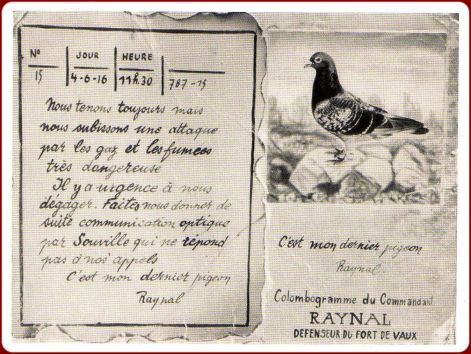 No | JOUR | HEURE
15 | 4-6-16 | 11h.30 | 787-15
Nous tenons toujours mais
nous subissons une attaque
par les gaz et les fumées
très dangereuse
Il y a urgence à nous
dégager. Faites nous donner de
suite communication optique
par Souville qui ne répond
pas à nos appels
C'est mon dernier pigeon
Raynal
C'est mon dernier pigeon
Raynal
Colombogramme du Commandant
RAYNAL
DEFENSEUR DU FORT DE VAUX